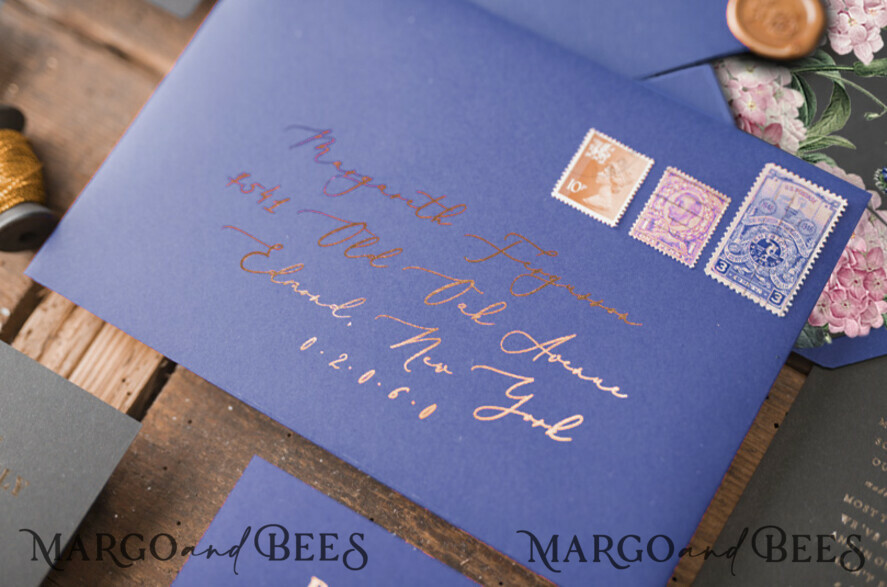 Margarith Ferguson
4541 Old Oak Avenue
Edmond, New York
0.2.0.6.0
10P
3 3
MOST
MARGO and BEES
MARGO and BEES